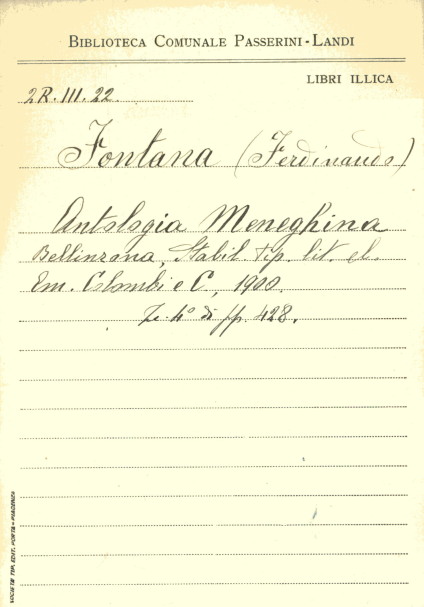 BIBLIOTECA COMUNALE PASSERINI-LANDI
LIBRI ILLICA
2R. III. 22.
Fontana (Ferdinando)
Antologia Meneghina
Bellinzona, Stabil. tip. lit. el.
Em. Colombi e C, 1900.
4º di pp. 428.
SOCIETÀ TIP. EDIT. PORTA - PIACENZA